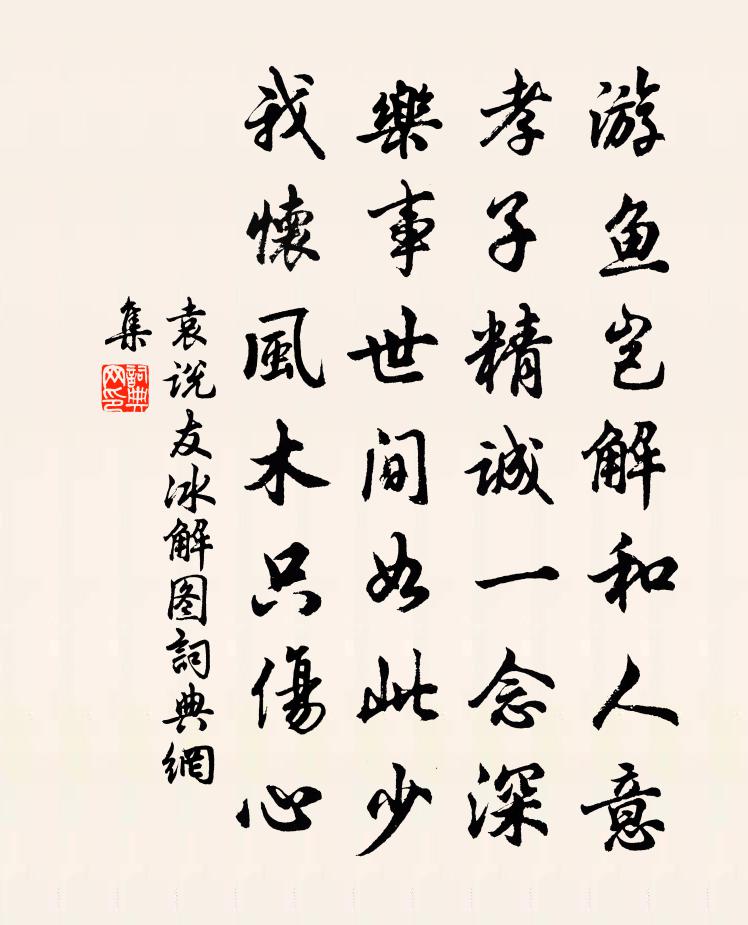 游鱼岂解和人意
孝子精诚一念深
樂事世间如此少
我懷風木只傷心
袁说友冰解图詞典網
集
詞典
网印